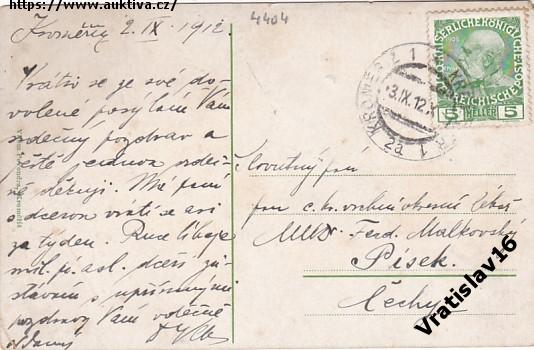 https://www.auktiva.cz/
4404
Kroměříž 2. IX. 1912.
Vrátiv se ze své do-
volené posýlám Vám
srdečný pozdrav a
ještě jednou srdeč-
ně děkuji. Má paní
s dcerou vrátí se asi
za týden. Ruce líbaje
mil. pí. a sl. dceři zů-
stávám s upřímnými
pozdravy Vám vděčně
oddaný
KAISERLICHE KÖNIGLICHE
ÖSTERREICHISCHE POST
5 HELLER 5
KROMĚŘÍŽ 1
3.IX.12
KREMSIER 1
2a
Slovutný pan
pan c. kr. vrchní okresní lékař
MUDr. Ferd. Malkovský
Písek.
Čechy
Vratislav16